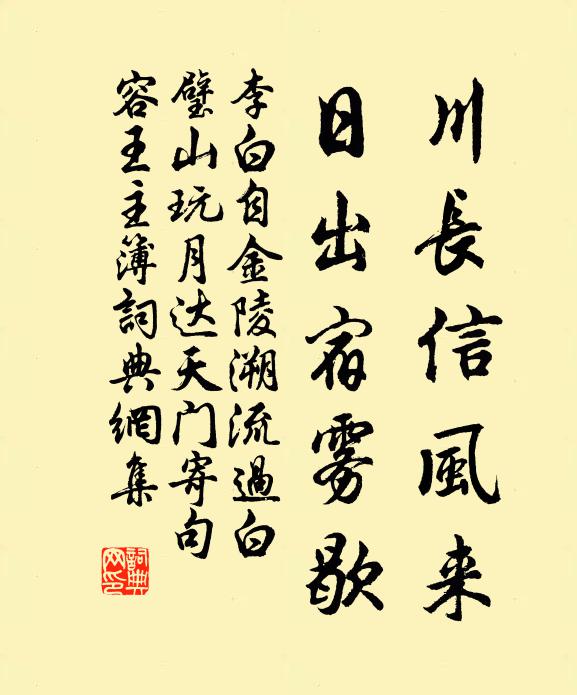 川長信風来
日出宿雾歇
李白自金陵溯流過白
璧山玩月达天门寄句
容王主簿詞典網集